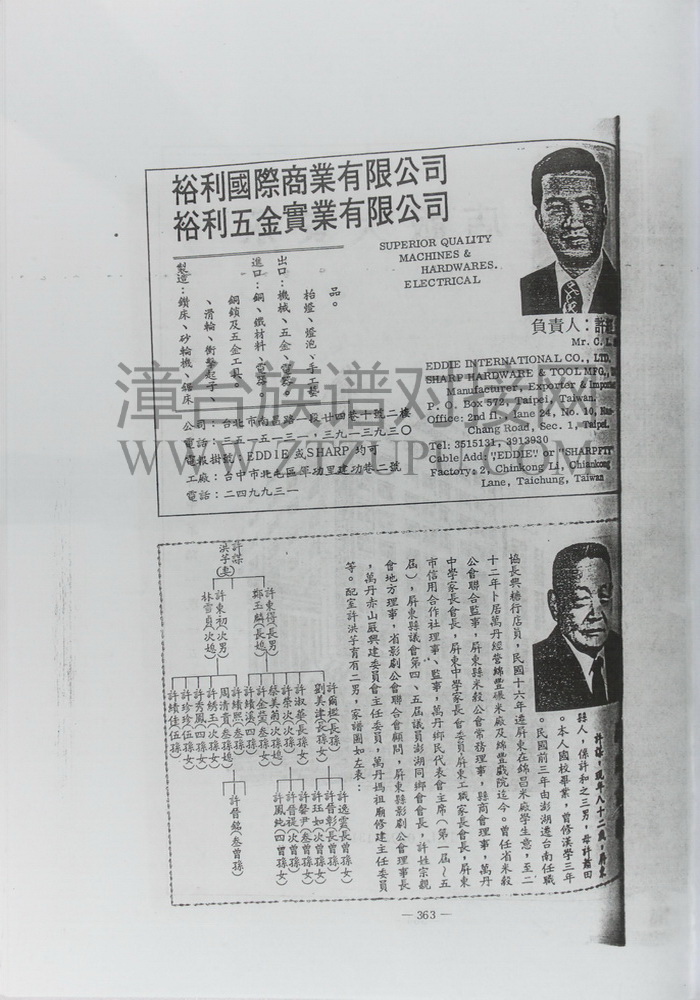 裕利國際商業有限公司
裕利五金實業有限公司
SUPERIOR QUALITY
MACHINES &
HARDWARES.
ELECTRICAL
負責人：許
Mr. C. L.
出口：機械、五金、電器、
枱燈、燈泡、手工藝
品。
進口：鋼、鐵材料、電器。
製造：鑽床、砂輪機、鋸床
、滑輪、衝擊起子、
鋼鎖及五金工具。
公司：台北市南昌路一段廿四巷十號二樓
電話：三五一五一三一，三九一三九三〇
電報掛號：EDDIE或SHARP均可
工廠：台中市北屯區軍功里建功巷二號
電話：二四九九三一
EDDIE INTERNATIONAL CO., LTD.
SHARP HARDWARE & TOOL MFG.,
Manufacturer, Exporter & Importer
P. O. Box 572, Taipei, Taiwan.
Office: 2nd fl., lane 24, No. 10, Nan-
Chang Road, Sec. 1, Taipei.
Tel: 3515131, 3913930
Cable Add: "EDDIE" or "SHARPFIT"
Factory: 2, Chinkong Li, Chiankong
Lane, Taichung, Taiwan
漳台族谱对接网
WWW.ZTZUPU.COM
許謀，現年八十二歲，屏東
縣人，係許和之三男，母許蕭田
。本人國校畢業，曾修漢學三年
。民國前三年由澎湖遷台南任職
協長興糖行店員，民國十六年遷屏東在錦昌米廠學生意，至二
十二年卜居萬丹經營錦豐碾米廠及錦豐戲院迄今。曾任省米穀
公會聯合監事，屏東縣米穀公會常務理事，縣商會理事，萬丹
中學家長會長，屏東中學家長會委員屏東工職家長會長，屏東
市信用合作社理事、監事，萬丹鄉民代表會主席（第一屆～五
屆），屏東縣議會第四、五屆議員澎湖同鄉會會長，許姓宗親
會地方理事，省影劇公會聯合會顧問，屏東縣影劇公會理事長
，萬丹赤山巖興建委員會主任委員，萬丹媽祖廟修建主任委員
等。配室許洪芋育有二男，家譜圖如左表：
許謀
洪芋(妻)
許東發(長男)
鄭玉麟(長媳)
許東初(次男)
林雪貞(次媳)
許爾檻(長孫)
劉美津(長孫媳)
許淑華(長孫女)
許榮次(次孫)
蔡美菊(次孫媳)
許金蘂(參孫女)
許績溪(四孫)
許績熙(參孫)
周清貴(參孫媳)
許綉玉(次孫女)
許秀鳳(四孫女)
許珍珍(伍孫女)
許績佳(伍孫)
許逸霞(長曾孫女)
許晉彰(長曾孫)
許珏如(次曾孫女)
許馨尹(參曾孫女)
許晉禔(次曾孫)
許鳳純(四曾孫女)
許晉銘(參曾孫)
— 363 —